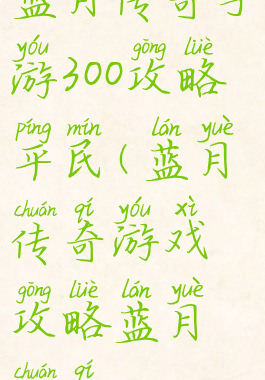 蓝月传奇手
yóu gōng lüè
游300攻略
píng mín lán yuè
平民(蓝月
chuán qí yóu xì
传奇游戏
gōng lüè lán yuè
攻略蓝月
chuán qí